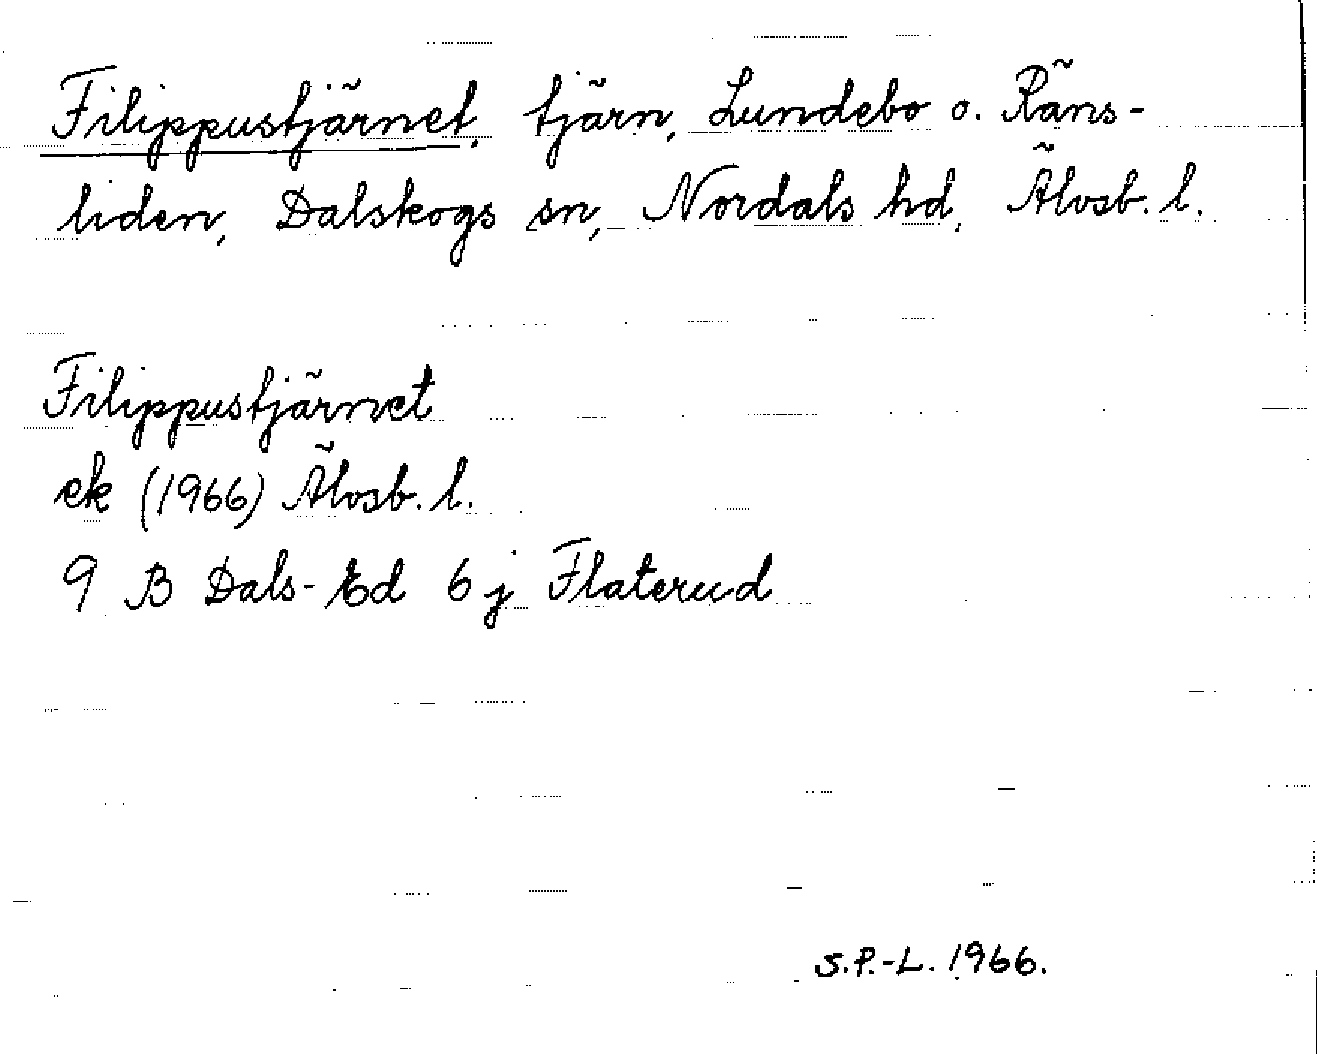 Filippustjärnet, tjärn, Lundebo o. Räns-
liden, Dalskogs sn, Nordals hd, Älvsb. l.
Filippustjärnet
ek (1966) Älvsb. l.
9 B Dals-Ed 6 j Flaterud
S.P.-L. 1966.